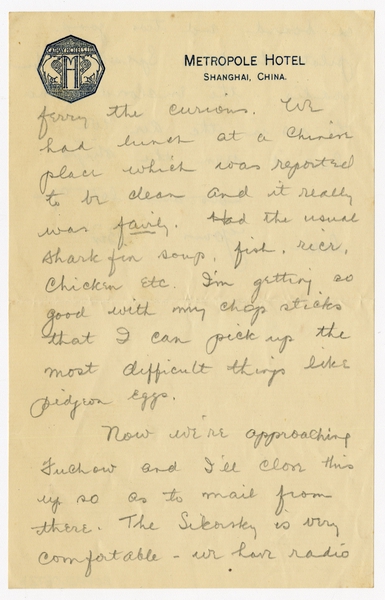 CATHAY HOTELS, LTD.
METROPOLE HOTEL
SHANGHAI, CHINA.
ferry the curious. We
had lunch at a Chinese
place which was reported
to be clean and it really
was fairly. Had the usual
shark fin soup, fish, rice,
chicken etc. I'm getting so
good with my chop sticks
that I can pick up the
most difficult things like
pidgeon eggs.
Now we're approaching
Fuchow and I'll close this
up so as to mail from
there. The Sikorsky is very
comfortable - we have radio